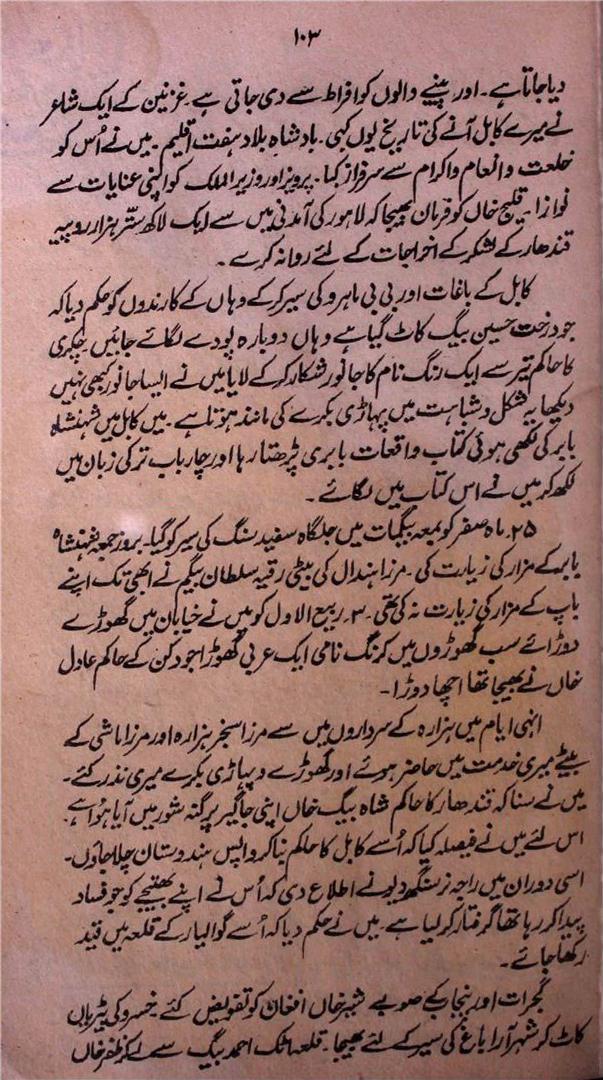 ۱۰۳
دیا جاتا ہے۔ اور پینے والوں کو افراط سے دی جاتی ہے۔ غزنین کے ایک شاعر
نے میرے کابل آنے کی تاریخ یوں کہی۔ بادشاہ بلاد ہفت اقلیم۔ میں نے اُس کو
خلعت و انعام و اکرام سے سرفراز کیا۔ پرویز اور وزیر الملک کو اپنی عنایات سے
نوازا۔ قلیچ خاں کو فرمان بھیجا کہ لاہور کی آمدنی میں سے ایک لاکھ ستر ہزار روپیہ
قندھار کے لشکر کے اخراجات کے لئے روانہ کرے۔
کابل کے باغات اور بی بی ماہرو کی سیر کر کے وہاں کے کارندوں کو حکم دیا کہ
جو درخت حسین بیگ کاٹ گیا ہے وہاں دوبارہ پودے لگائے جائیں۔ چکری
کا حاکم تیر سے ایک رنگ نام کا جانور شکار کر کے لایا میں نے ایسا جانور کبھی نہیں
دیکھا یہ شکل و شباہت میں پہاڑی بکرے کی مانند ہوتا ہے۔ میں کابل میں شہنشاہ
بابر کی لکھی ہوئی کتاب واقعات بابری پڑھتا رہا اور چار باب ترکی زبان میں
لکھ کر میں نے اس کتاب میں لگائے۔
۲۵۔ ماہ صفر کو بمعہ بیگمات میں جلگاہ سفید سنگ کی سیر کو گیا۔ بروز جمعہ شہنشاہ
بابر کے مزار کی زیارت کی۔ مرزا ہندال کی بیٹی رقیہ سلطان بیگم نے ابھی تک اپنے
باپ کے مزار کی زیارت نہ کی تھی۔ ۳۔ ربیع الاول کو میں نے خیابان میں گھوڑے
دوڑائے سب گھوڑوں میں کرنگ نامی ایک عربی گھوڑا جو دکن کے حاکم عادل
خاں نے بھیجا تھا اچھا دوڑا۔
انہی ایام میں ہزارہ کے سرداروں میں سے مرزا سنجر ہزارہ اور مرزا ماشی کے
بیٹے میری خدمت میں حاضر ہوئے اور گھوڑے و پہاڑی بکرے میری نذر کئے۔
میں نے سنا کہ قندھار کا حاکم شاہ بیگ خاں اپنی جاگیر پرگنہ شور میں آیا ہوا ہے۔
اس لئے میں نے فیصلہ کیا کہ اُسے کابل کا حاکم بنا کر واپس ہندوستان چلا جاؤں۔
اسی دوران میں راجہ نرسنگھ دیو نے اطلاع دی کہ اُس نے اپنے بھتیجے کو جو فساد
پیدا کر رہا تھا گرفتار کر لیا ہے۔ میں نے حکم دیا کہ اُسے گوالیار کے قلعہ میں قید
رکھا جائے۔
گجرات اور پنجاب کے صوبے شیر خاں افغان کو تفویض کئے۔ خسرو کی بیڑیاں
کاٹ کر شہر آرا باغ کی سیر کے لئے بھیجا۔ قلعہ اٹک احمد بیگ سے لے کر ظفر خاں